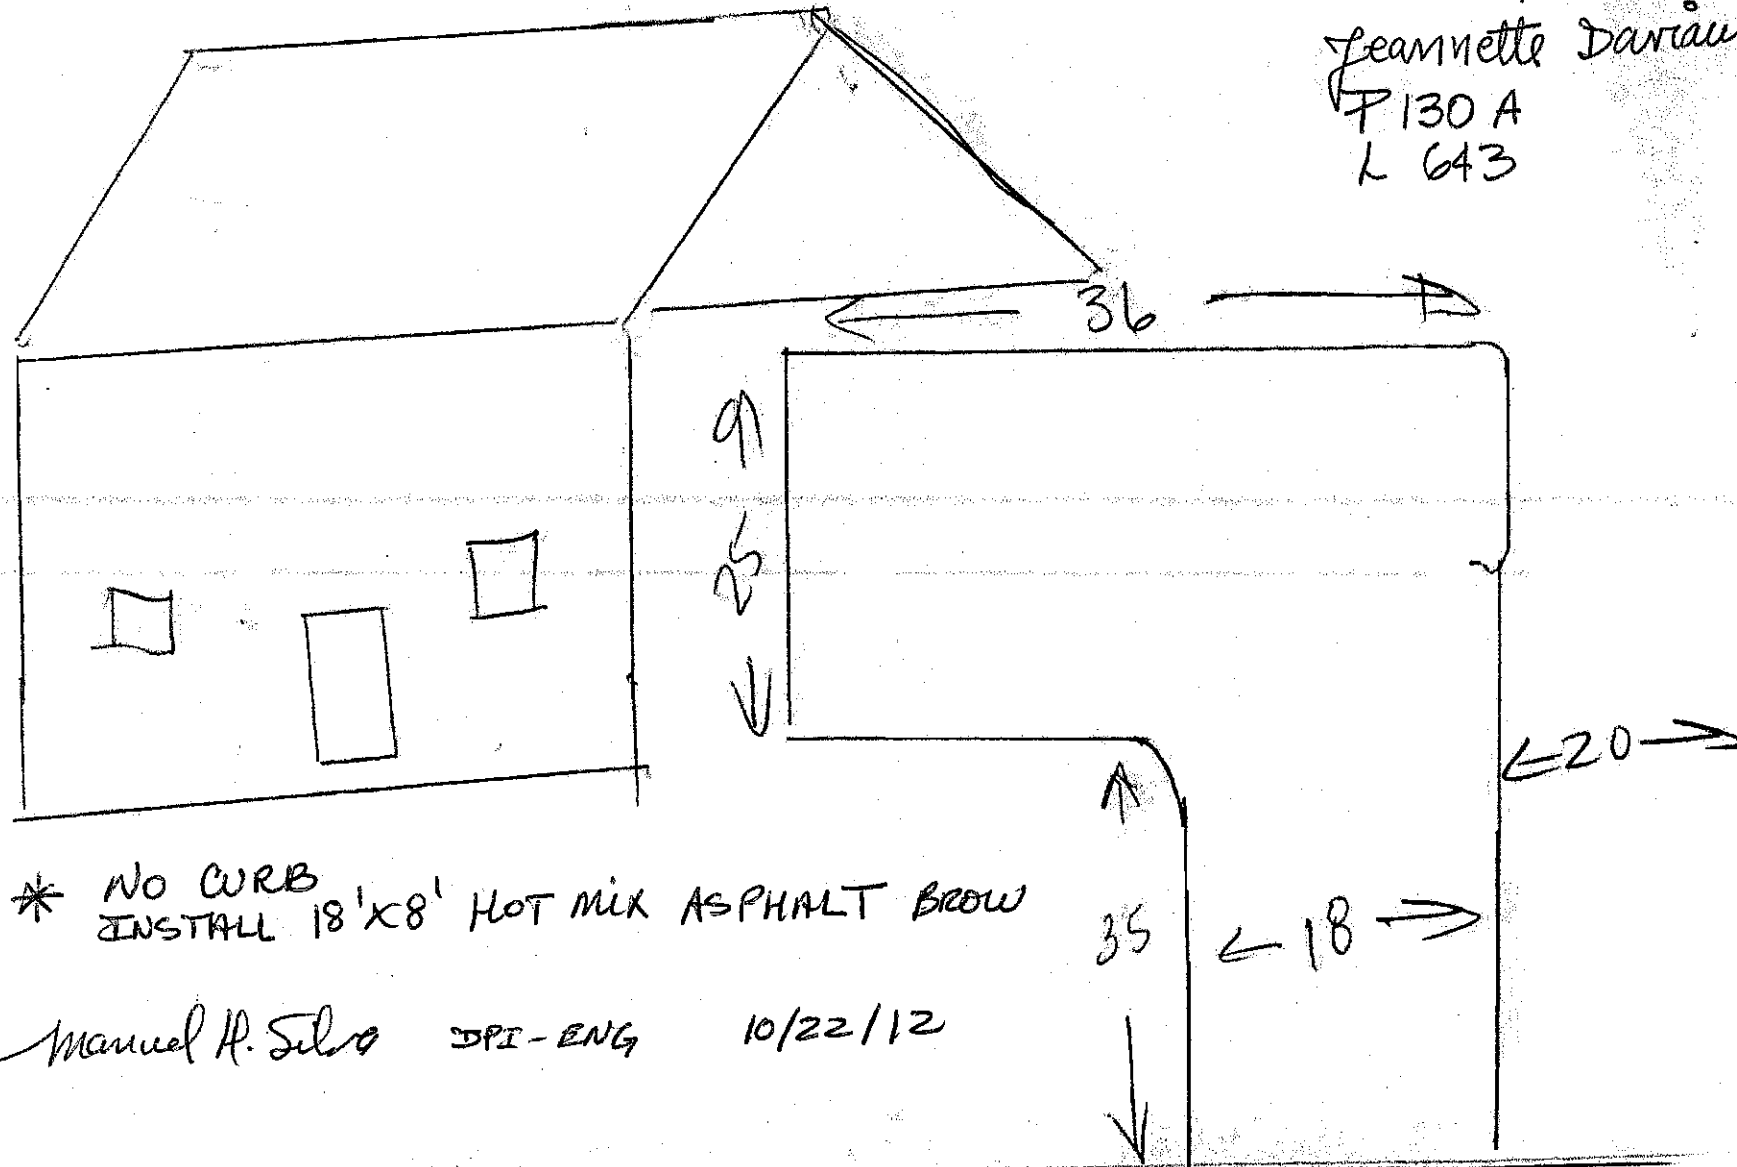 Jeannette Daviau
P 130 A
L 643
36
25
20
* NO CURB
INSTALL 18'X8' HOT MIX ASPHALT BROW
35
18
Manuel H. Silva DPI-ENG 10/22/12